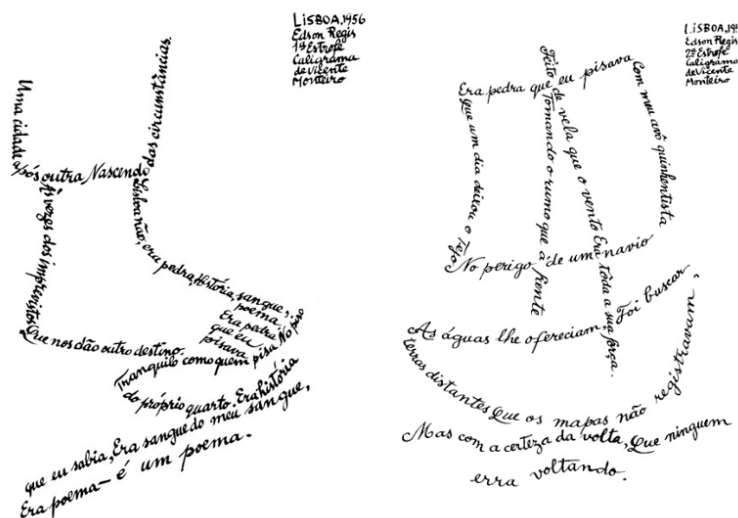 LISBOA, 1956
Edson Regis
1ª Estrofe
Caligrama
de Vicente
Monteiro
Uma cidade após outra, Nascendo das circunstâncias.
Às vezes dos imprevistos
Que nos dão outro destino.
Lisboa não, era pedra, História, sangue,
poema.
Era pedra
que eu
pisava
Tranquilo como quem pisa No piso
do próprio quarto. Era história
que eu sabia, Era sangue do meu sangue,
Era poema — é um poema.
LISBOA, 19
Edson Regis
2ª Estrofe
Caligrama
de Vicente
Monteiro
Era pedra que eu pisava
Com meu avô quinhentista
que um dia deixou o Tejo
No perigo de um navio
Feito de vela que o vento Era tôda a sua força.
Tomando o rumo que à frente
As águas lhe ofereciam, Foi buscar
terras distantes Que os mapas não registravam,
Mas com a certeza da volta, Que ninguem
erra voltando.